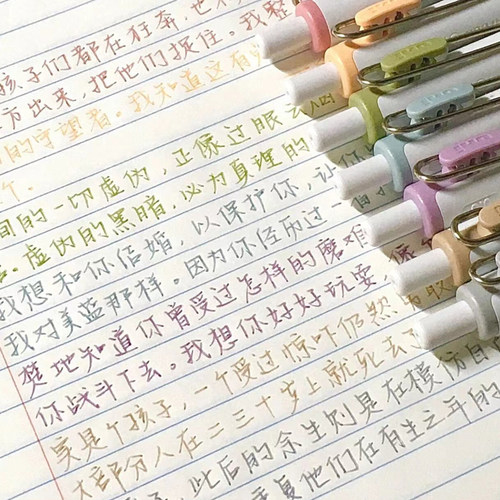 孩子们都在狂奔，也
方出来，把他们捉住。我整
的守望者。我知道这有
个.
间的一切虚伪，正像过眼云烟
虚伪的黑暗，必为真理的
我想和你结婚，以保护你，让你
我对美蓝那样。因为你经历过一
楚地知道你曾受过怎样的磨难
你战斗下去。我想你好好玩耍，像
实是个孩子，一个受过惊吓仍然
大部分人在二三十岁上就死去了
此后的余生则是在模仿自己
重复他们在有生之年的